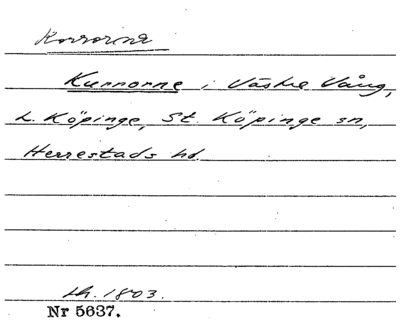 Korrorne
Kurrorne i Västre Vång,
L. Köpinge, St. Köpinge sn,
Herrestads hd.
Lh. 1803.
Nr 5637.